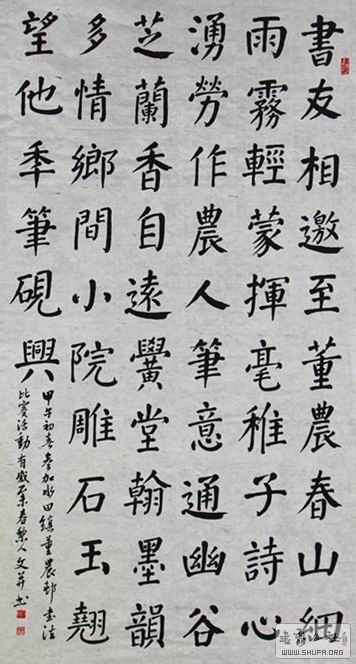 書友相邀至董農春山細
雨霧輕蒙揮毫稚子詩心
湧勞作農人筆意通幽谷
芝蘭香自遠黌堂翰墨韻
多情鄉間小院雕石玉翹
望他秊筆硯興
甲午初春參加水田鎮董農邨書法
比賽活動有感人文并书
WWW.SHUFA.ORG